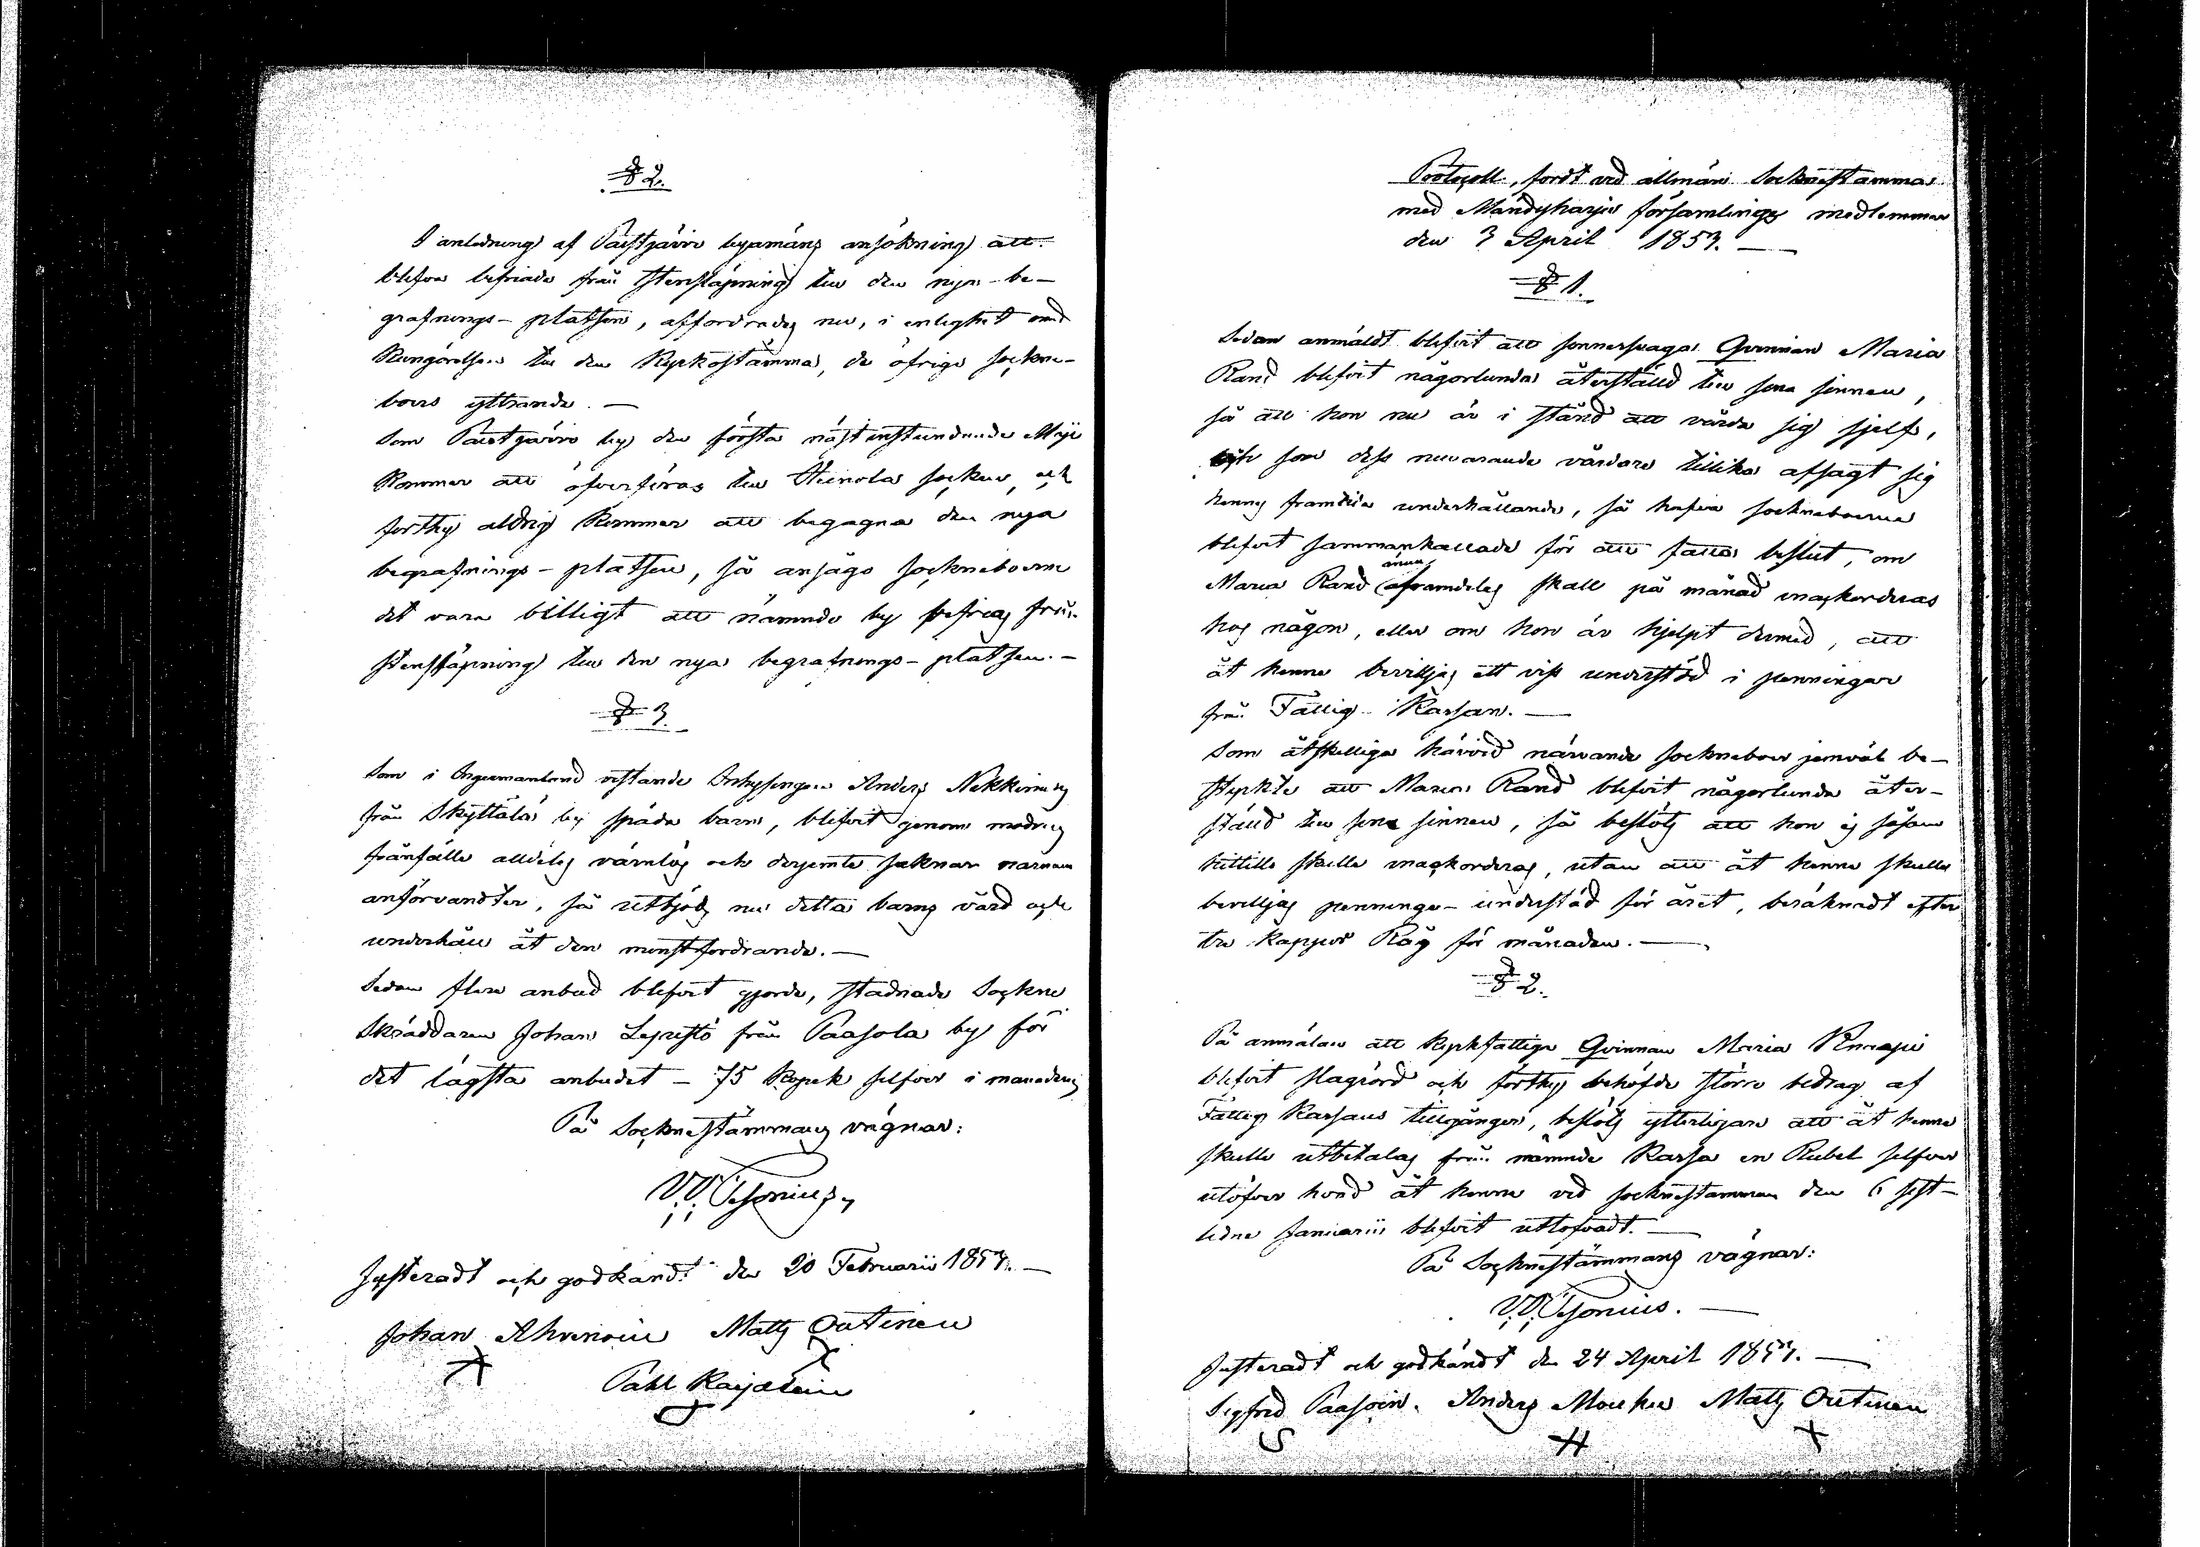 § 2.
I anledning af Paistjärvi byamäns ansökning att
blifva befriade från stensläpning till den nya be-
grafnings-platsen, affordrades nu, i enlighet med
kungörelsen till den Kyrkostämma, de öfrige sockne-
boers yttrande. —
Som Paistjärvi by den första nästinstundande Maji
kommer att öfverföras till Heinola socken, och
forthy aldrig kommer att begagna den nya
begrafnings-platsen, så ansågo sockneboerne
det vara billigt att nämnde by befrias från
stensläpning till den nya begrafnings-platsen. —
§ 3.
Som i Ingermanland vistande Inhysingen Anders Nakkins
från Skyttälä by späda barn, blifvit genom modrens
frånfälle alldeles värnlös och derjemte saknar närmare
anförvandter, så utbjöds nu detta barns vård och
underhåll åt den minstfordrande. —
Sedan flere anbud blifvit gjorde, stadnade Sockne
Skräddaren Johan Lepistö från Paasola by för
det lägsta anbudet — 75 Kopek silfver i månaden
På Sockneståmmans vägnar:
Justeradt och godkändt den 20 Februarii 1853. —
Johan Ahvenain Matts Outinen
Påhl
Protocoll, fördt vid allmän Sockneståmma
med Mändyharju församlings medlemmar
den 3 April 1853. —
§ 1.
Sedan anmäldt blifvit att sinnessvaga Qvinnan Maria
Rand blifvit någorlunda återställd till sina sinnen,
så att hon nu är i stånd att vårda sig sjelf,
och som dess nuvarande vårdare tillika afsagt sig
hennes framtida underhållande, så hafva sockneboerne
blifvit sammankallade för att fatta beslut, om
Maria Rand ännu framdeles skall på månad inackorderas
hos någon, eller om hon är hjelpt dermed, att
åt henne beviljas ett visst understöd i penningar
från Fattig-Kassan. —
Som åtskilliga härvid närvarande socknebor jemväl be-
styrkte att Maria Rand blifvit någorlunda åter-
stäld till sina sinnen, så beslöts att hon ej såsom
hittills skulle inackorderas, utan att åt henne skulle
beviljas penninge-understöd för året, beräknadt efter
tre kappar Råg för månaden. —
§ 2.
På anmälan att kyrkfattiga Qvinnan Maria
blifvit slagrörd och forthy behöfde större bidrag af
Fattig Kassans tillgångar, beslöts ytterligare att åt henne
skulle utbetalas från nämnde Kassa en Rubel silfver
utöfver hvad åt henne vid socknestämman den 6 sist-
lidne Januarii blifvit utlofvadt. —
På Sockneståmmans vägnar:
Justeradt och godkändt den 24 April 1853. —
Sigfred Paasoin. Anders Matts Outinen